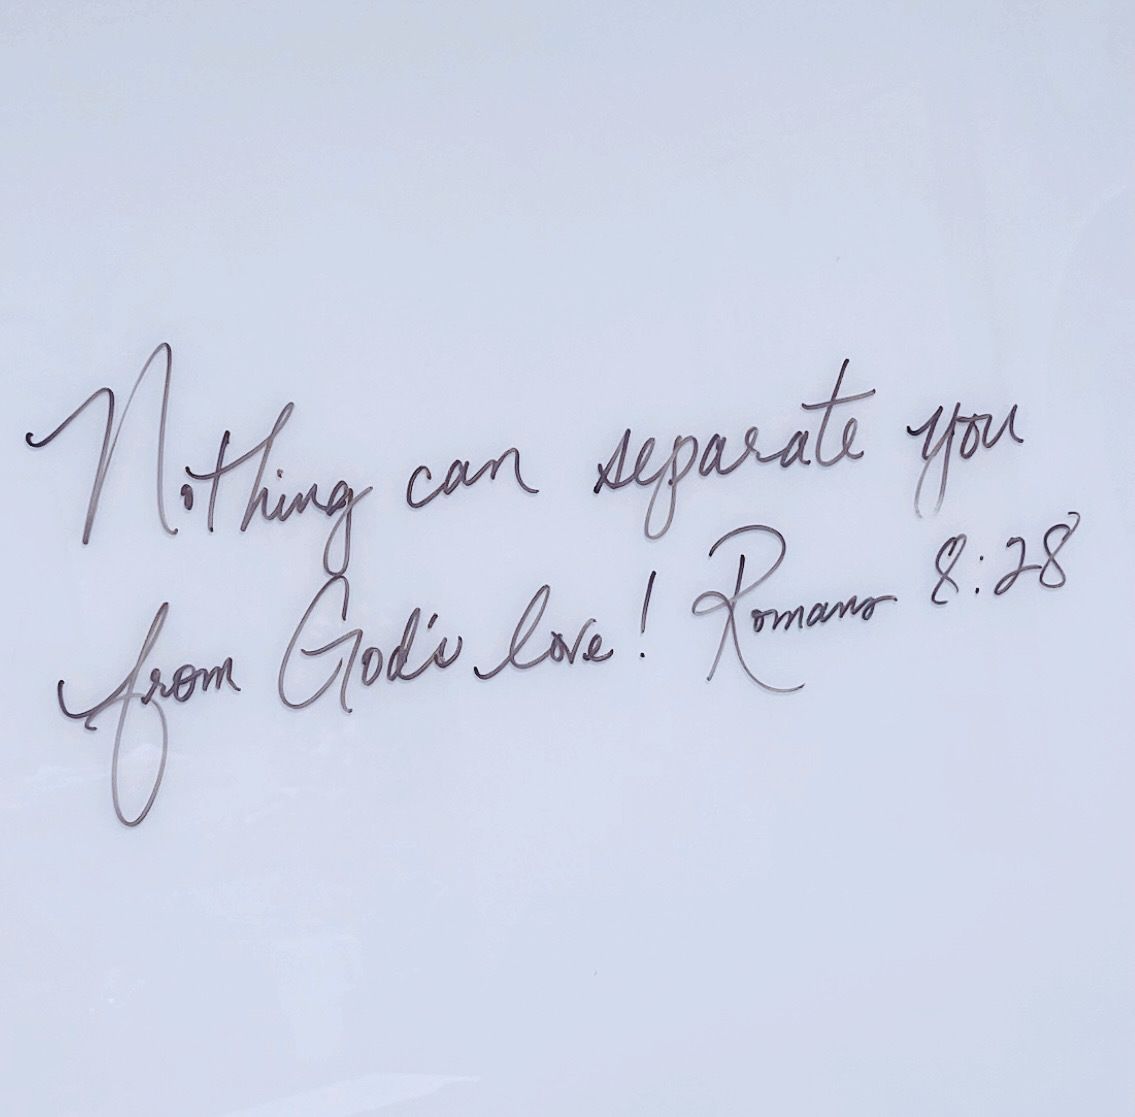 Nothing can separate you
from God's love! Romans 8:28